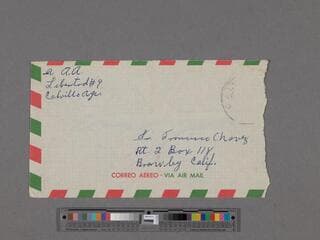 A.A
Libertad #9
Calvillo Ags
Sr Francisco Chavez
Rt 2 Box 118
Brawley Calif.
CORREO AEREO - VIA AIR MAIL